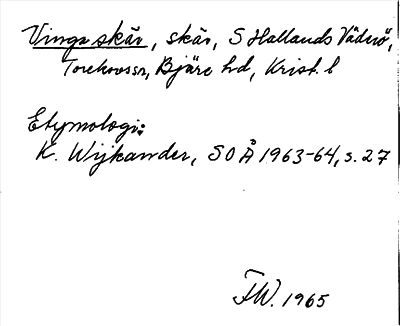 Vinga skär, skär, S Hallands Väderö,
Torekovssn, Bjäre hd, Krist. l
Etymologi:
K. Wijkander, SOÅ 1963-64, s. 27
FW. 1965